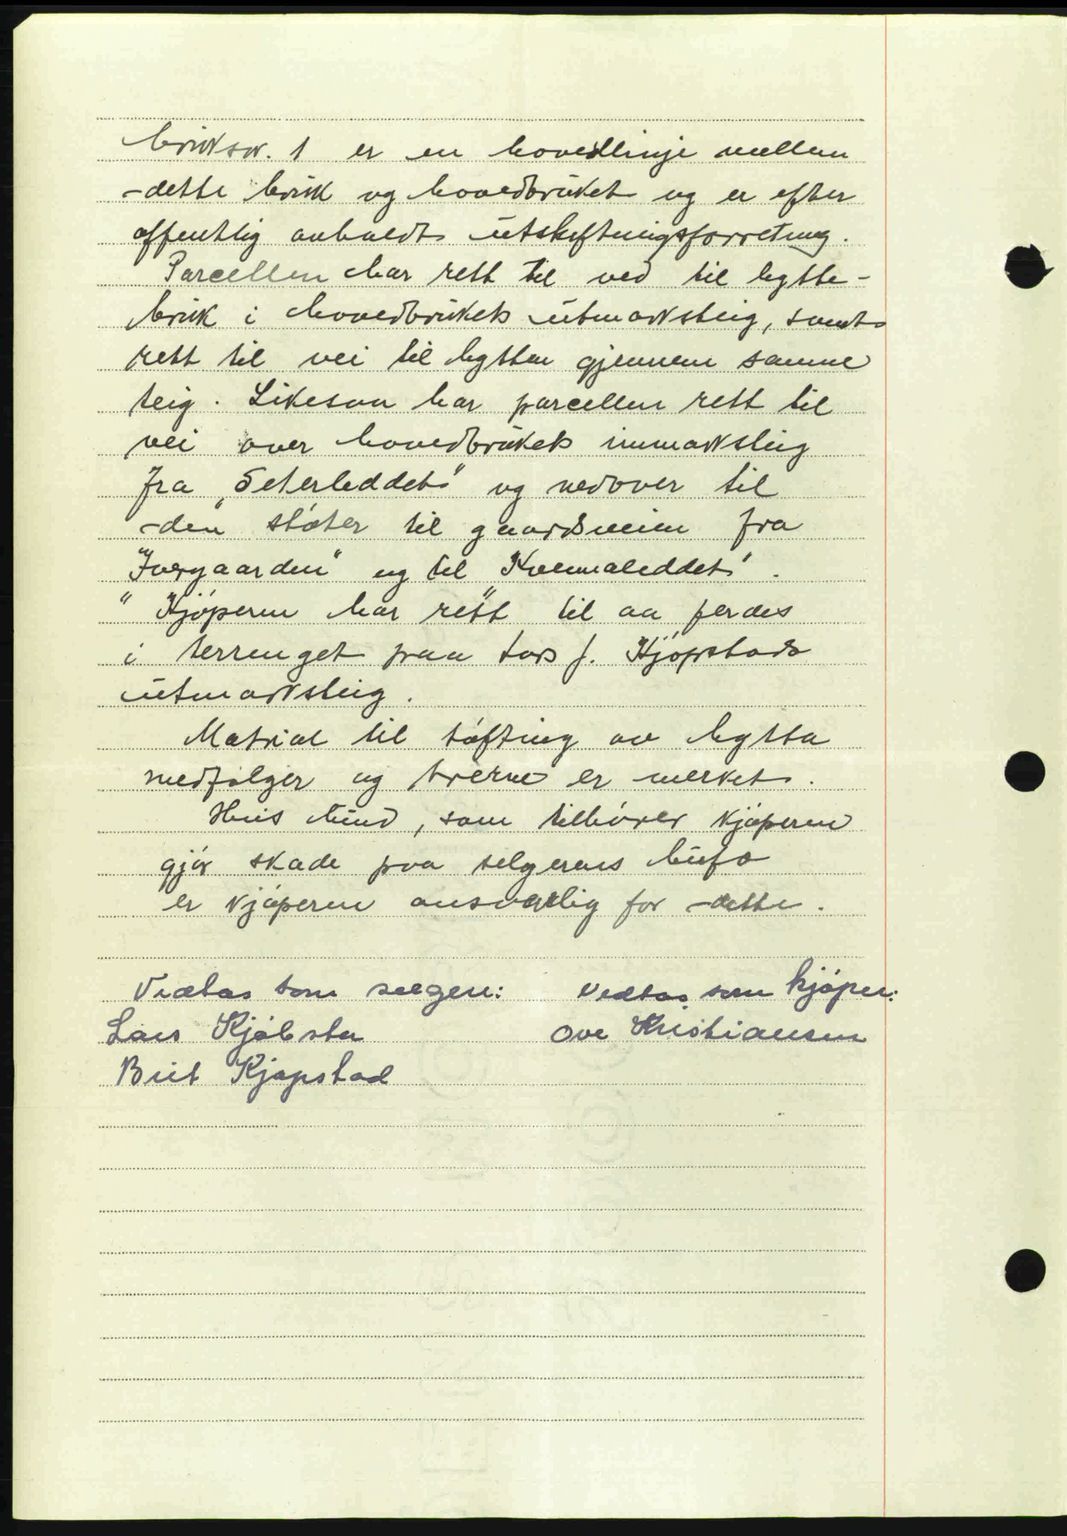 bruksnr. 1 er en hovedlinje mellem
dette bruk og hovedbruket og er efter
offentlig avholdt utskiftningsforretning.
Parcellen har rett til ved til hytte-
bruk i hovedbrukets utmarksteig, samt
rett til vei til hytten gjennem samme
teig. Likesaa har parcellen rett til
vei over hovedbrukets innmarksteig
fra "Seterleddet" og nedover til
den støter til gaardsveien fra
"Ivergaarden" og til "Kvennaleddet".
Kjøperen har rett til aa ferdes
i terrenget paa Lars J. Kjøpstads
utmarksteig.
Matrial til tøfting av hytta
medfølger og trærne er merket.
Hvis hund, som tilhører kjøperen
gjør skade paa selgerens bufæ
er kjøperen ansvarlig for dette.
Vedtas som selgere: Vedtas som kjøper:
Lars Kjøbsta Ove Kristiansen
Brit Kjøpstad